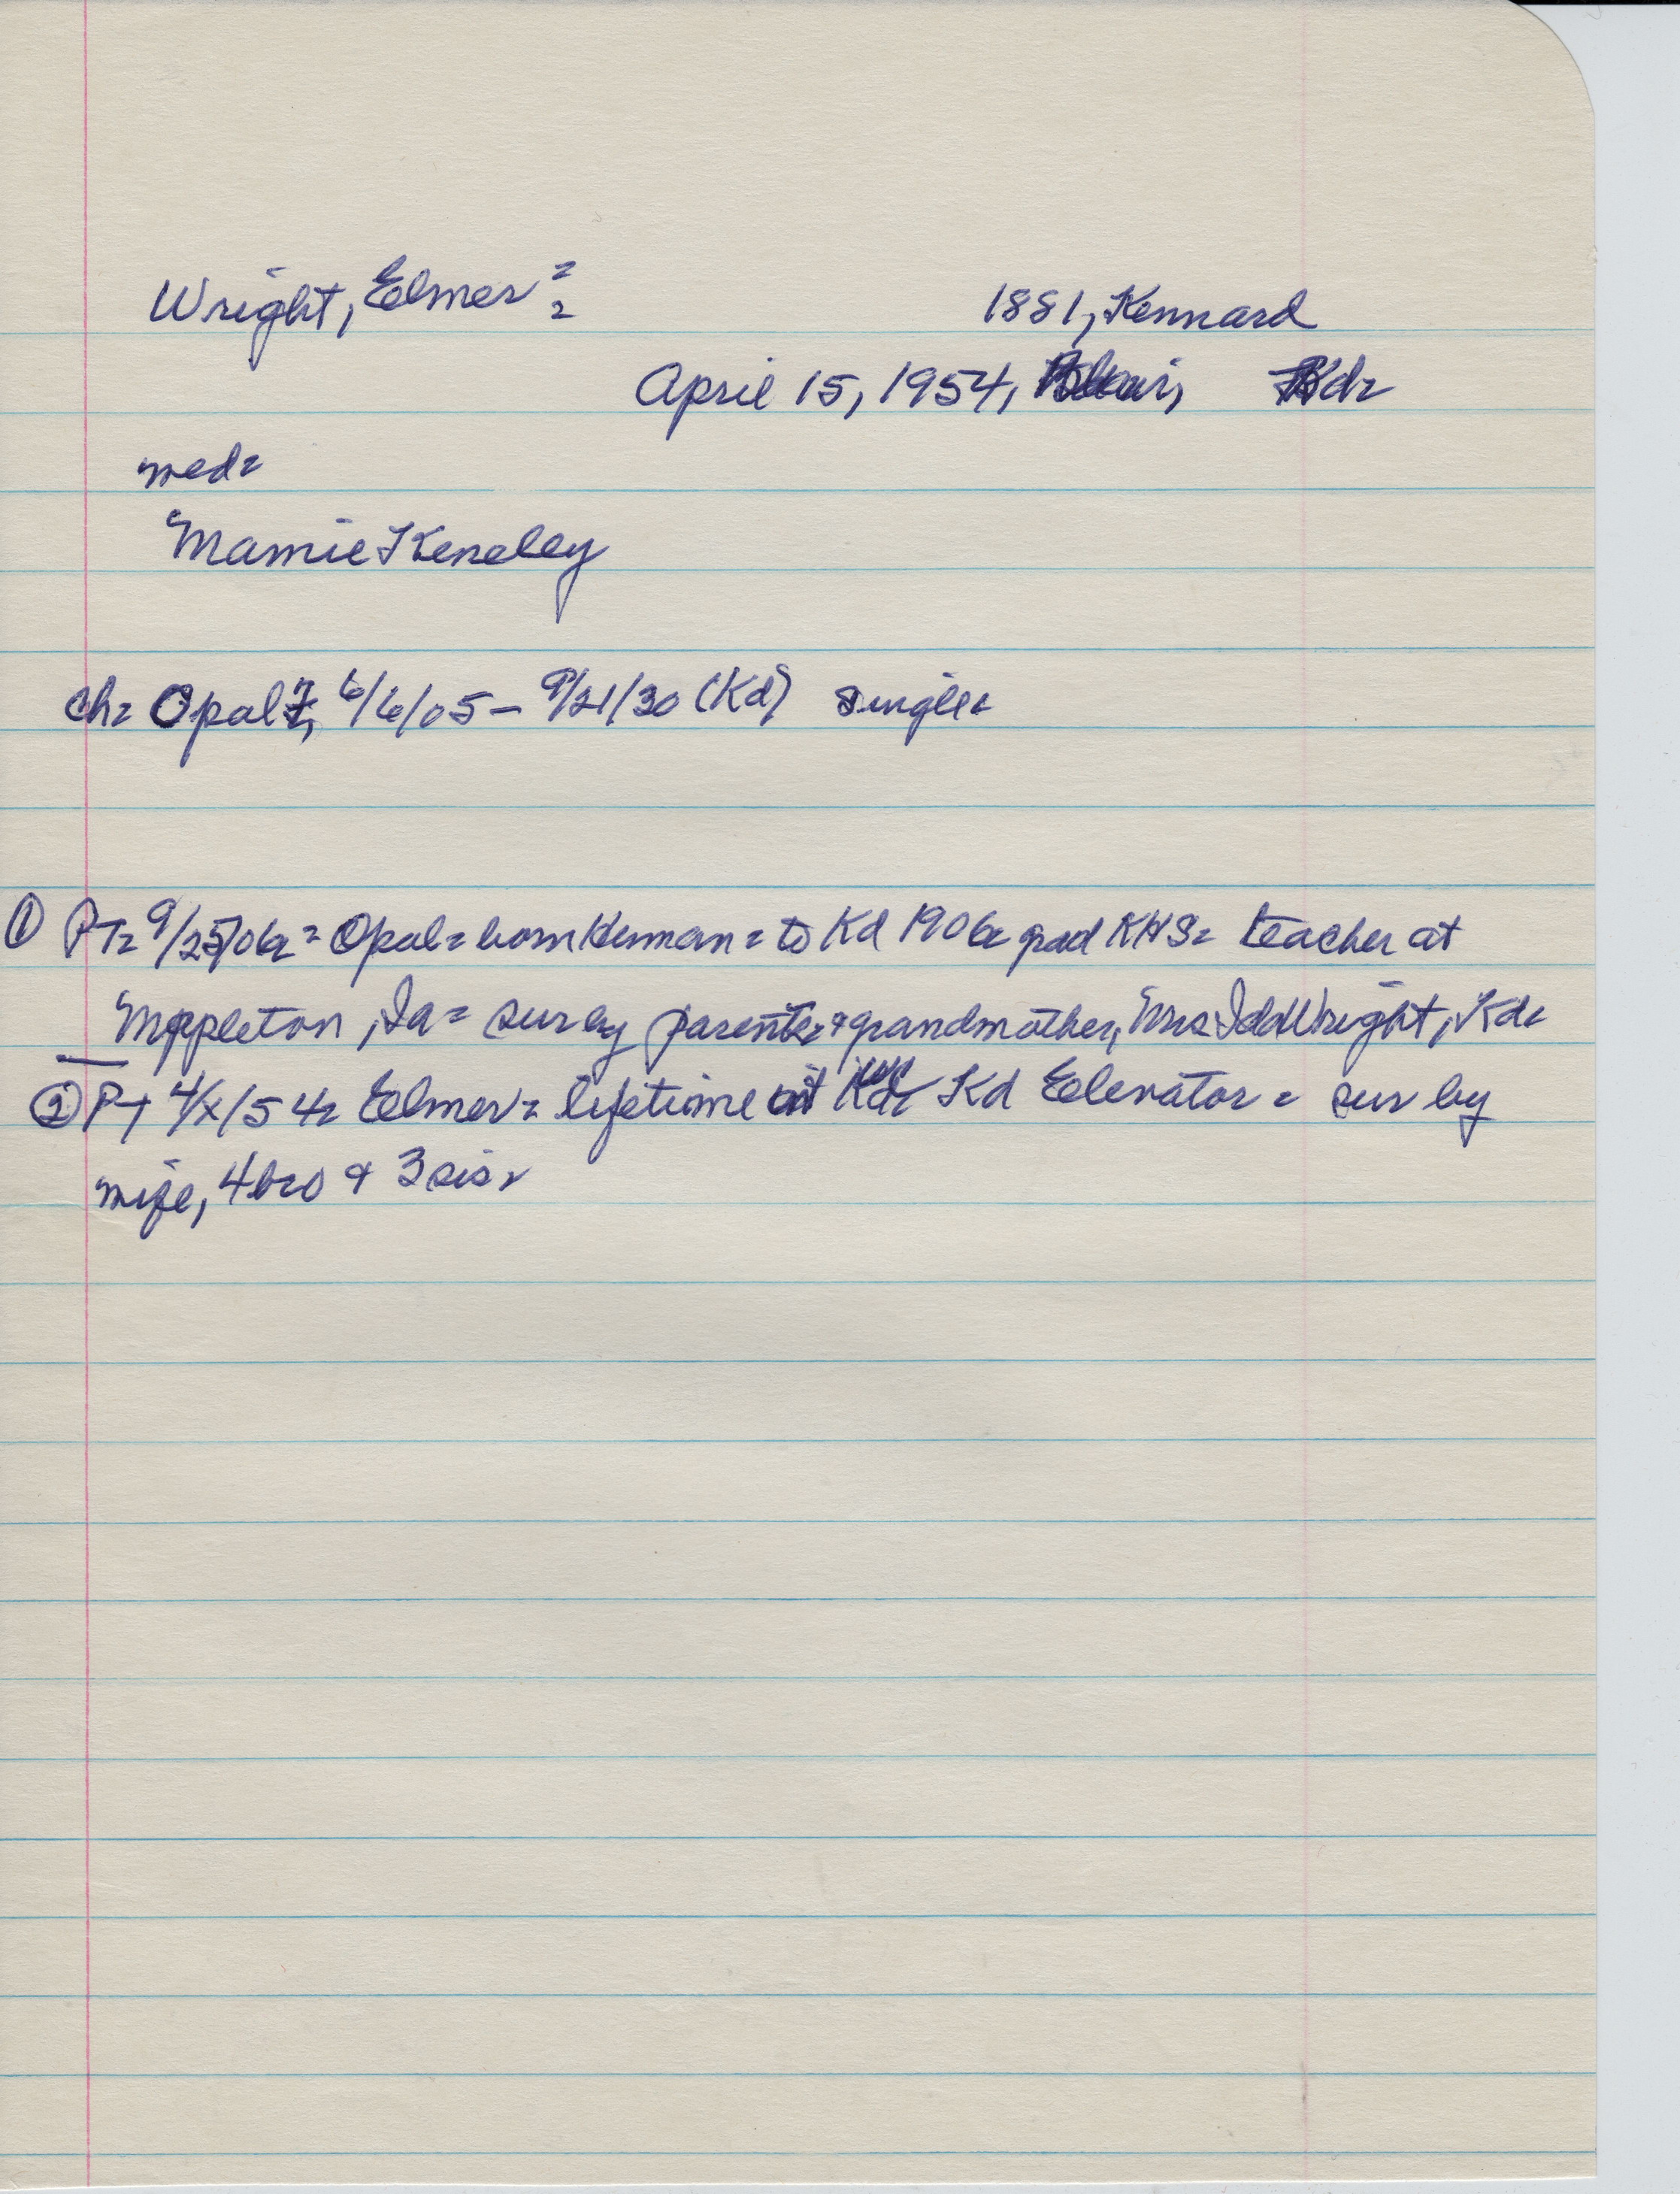 Wright, Elmer =
1881, Kennard
April 15, 1954, Blair, Kd=
med=
Mamie Keneley
ch= Opal F, 6/6/05 - 9/21/30 (Kd) single=
① PT= 9/25/06= = Opal = born Herman = to Kd 1906= grad KHS= teacher at
Mappleton, Ia = sur by parents= & grandmother, Mrs Ida Wright, Kd=
② PT 4/x/54= Elmer = lifetime at Kd Elevator = sur by
wife, 4 bro & 3 sis=